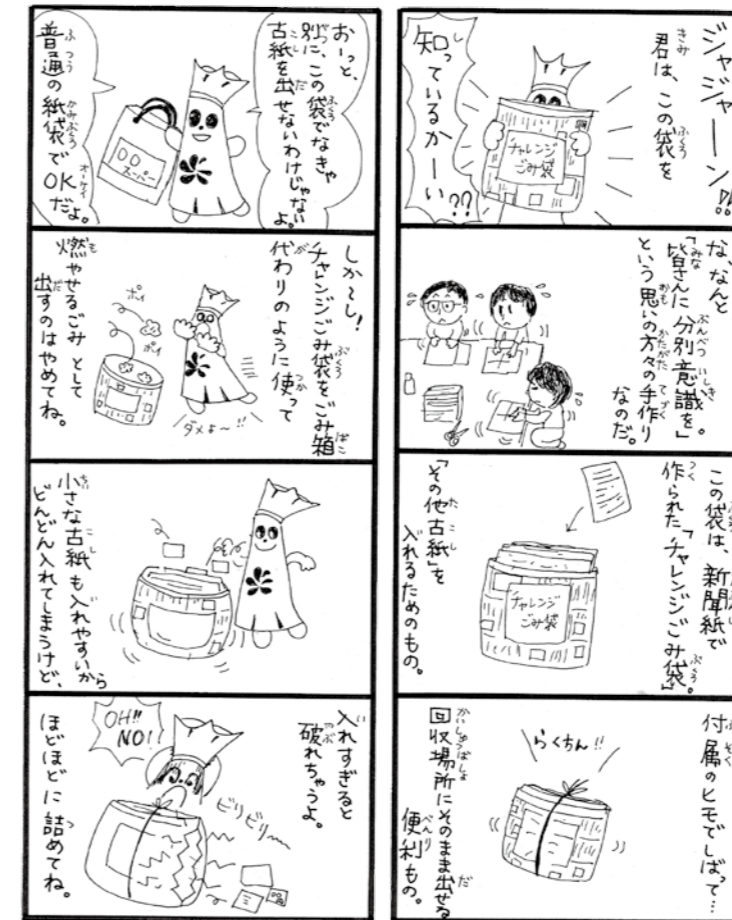 ジャジャーン!!
君は、この袋を
知っているかーい??
チャレンジ
ごみ袋
な、なんと
「皆さんに分別意識を」
という思いの方々の手作り
なのだ。
この袋は、新聞紙で
作られた「チャレンジごみ袋」。
「その他古紙」を
入れるためのもの。
チャレンジ
ごみ袋
付属のヒモでしばって…
らくちん!!
回収場所にそのまま出せる
便利もの。
おーっと、
別に、この袋でなきゃ
古紙を出せないわけじゃない
よ。
○○
スーパー
普通の紙袋で
OKだよ。
しか〜し!
チャレンジごみ袋をごみ箱
代わりのように使って
ダメよ〜!!
ポイ
ポイ
燃やせるごみとして
出すのはやめてね。
小さな古紙も入れやすいから
どんどん入れてしまうけど、
入れすぎると
破れちゃうよ。
OH!!
NO!
ビリビリ〜
ほどほどに詰めてね。